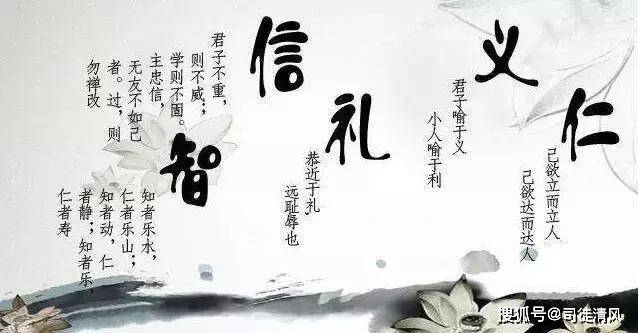 仁
己欲立而立人
己欲达而达人
义
君子喻于义
小人喻于利
礼
恭近于礼,
远耻辱也
信
君子不重，
则不威；
学则不固。
主忠信，
无友不如己
者。过，则
勿禅改
智
知者乐水，
仁者乐山；
知者动，仁
者静；知者乐，
仁者寿
搜狐号@司徒清风